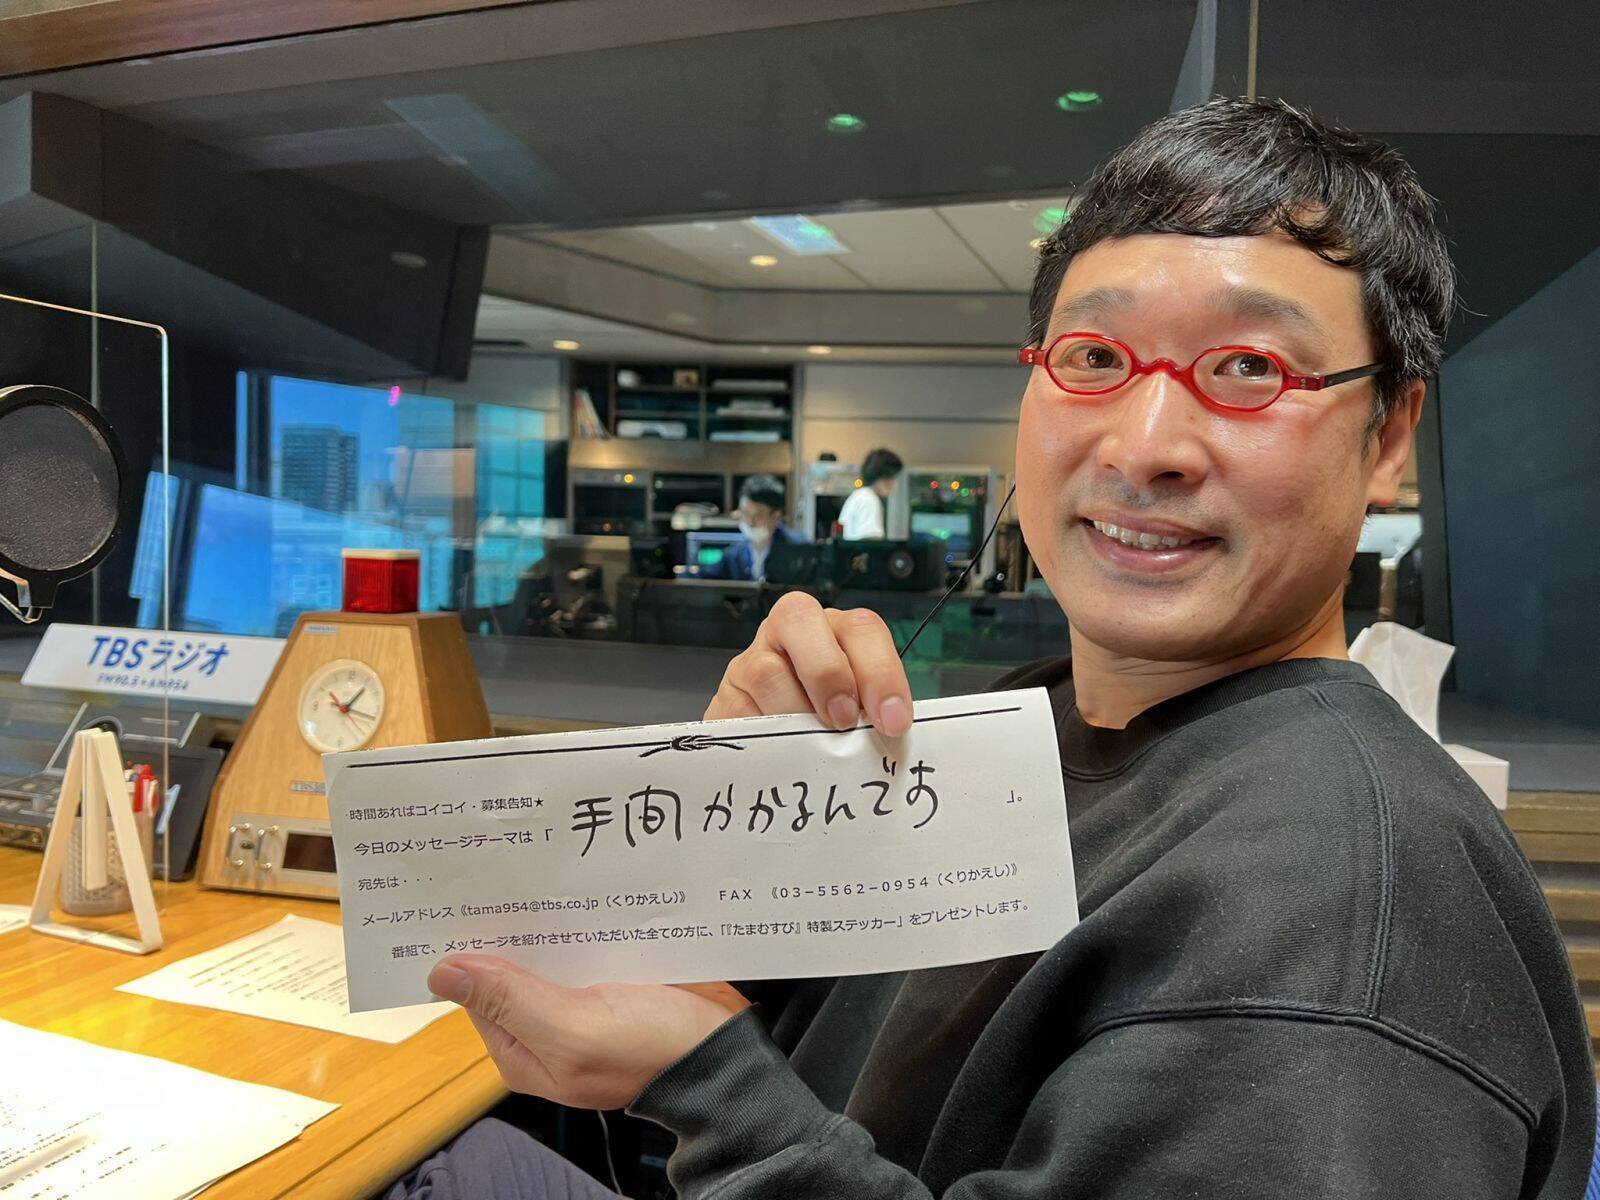 TBSラジオ
FM90.5+AM954
・時間あればコイコイ・募集告知★
今日のメッセージテーマは「手間かかるんです」。
宛先は・・・
メールアドレス《tama954@tbs.co.jp（くりかえし）》　ＦＡＸ　《０３－５５６２－０９５４（くりかえし）》
番組で、メッセージを紹介させていただいた全ての方に、「『たまむすび』特製ステッカー」をプレゼントします。